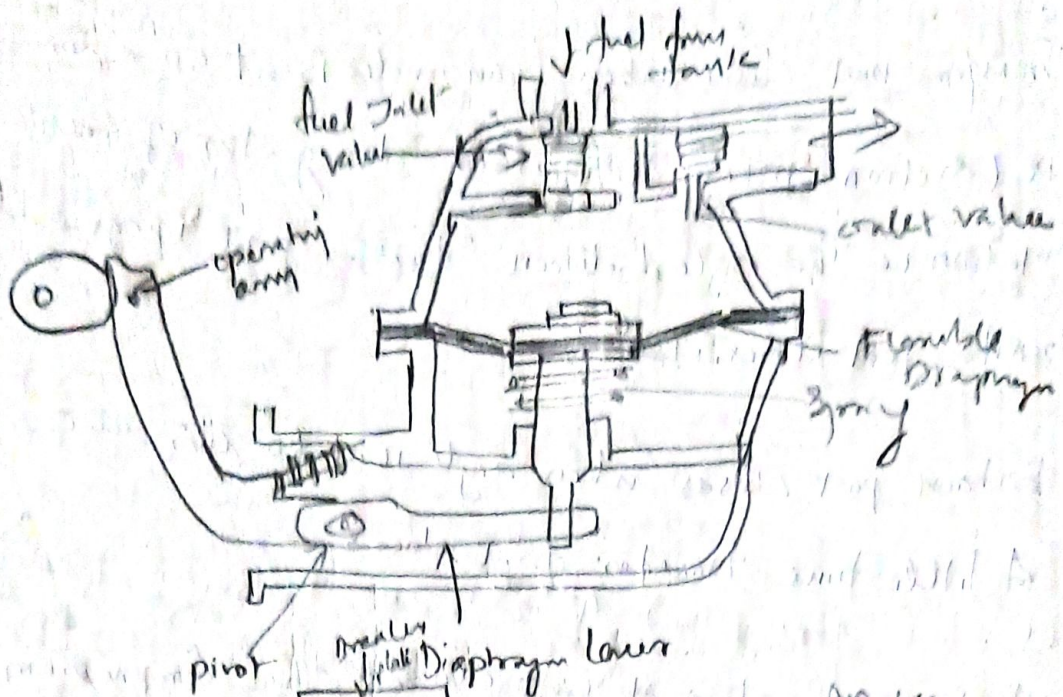 fuel from
tank
fuel Inlet
valve
outlet valve
operating
arm
Flexible
Diaphragm
Spring
pivot
Diaphragm lever